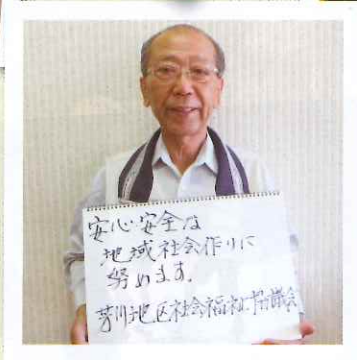 安心安全な
地域社会作りに
努めます.
芳川地区社会福祉協議会